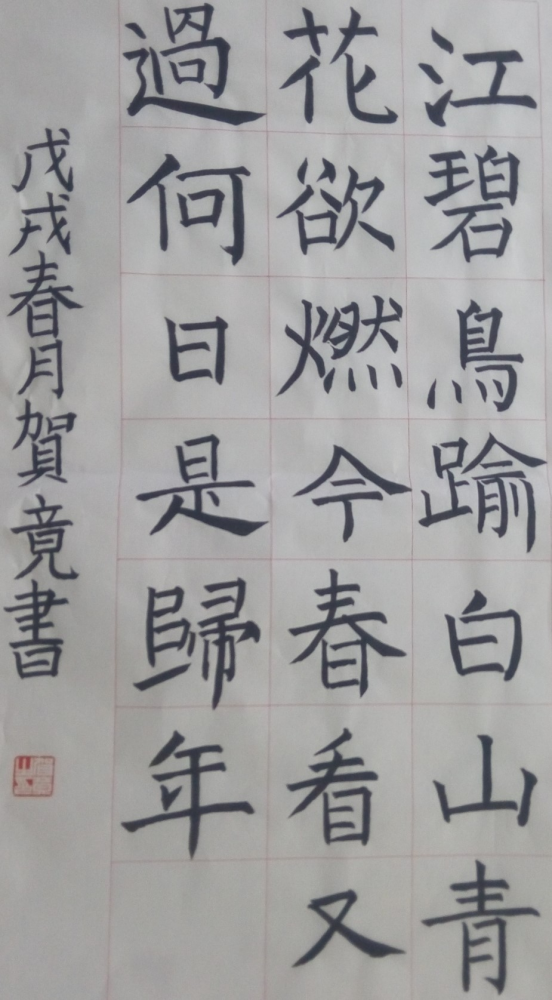 江碧鳥踰白山青
花欲燃今春看又
過何日是歸年
戊戌春月賀竟書